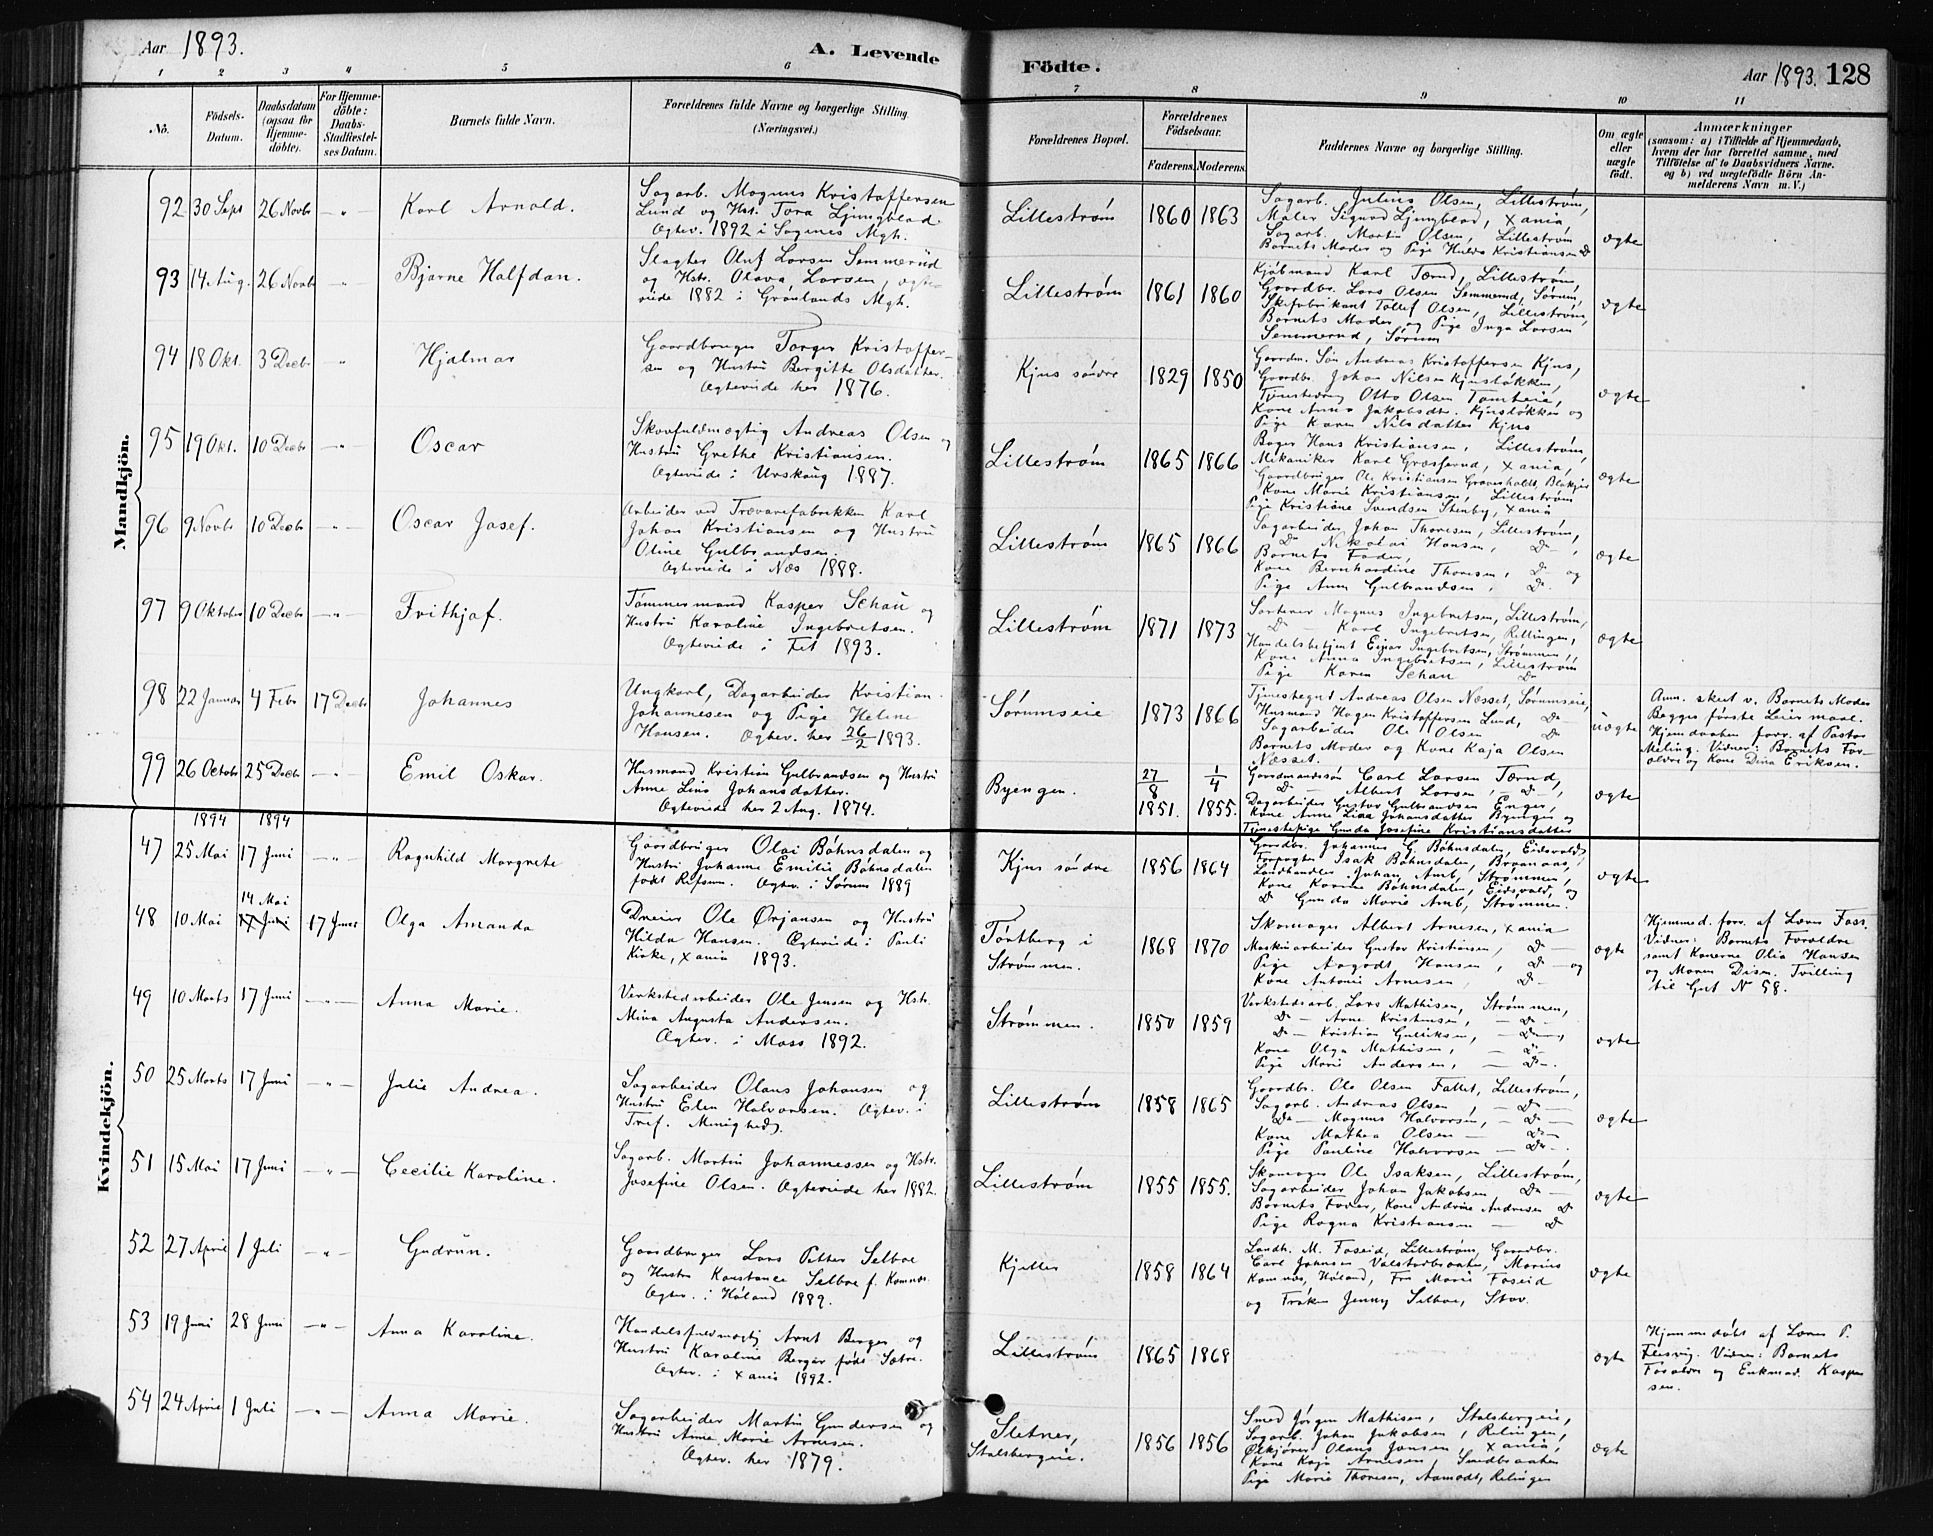 Aar 1893.
A. Levende
Födte.
Aar 1893. 128
1 2 3 4 5 6 7 8 9 10 11
No.
Födsels-
Datum.
Daabsdatum
(ogsaa for
Hjemme-
döbte).
For Hjemme-
döbte:
Daabs-
Stadfæstel-
ses Datum.
Barnets fulde Navn.
Forældrenes fulde Navne og borgerlige Stilling
(Næringsvei.)
Forældrenes Bopæl.
Forældrenes
Födselsaar.
Faderens. Moderens.
Faddernes Navne og borgerlige Stilling.
Om ægte
eller
uægte
födt.
Anmærkninger
(saasom: a) i Tilfælde af Hjemmedaab,
hvem der har forrettet samme, med
Tilföielse af to Daabsvidners Navne.
og b) ved uægtefödte Börn An-
melderens Navn m. V.)
Mandkjön.
92 30 Sept 26 Novbr -"- Karl Arnold.
Sagarb. Magnus Kristoffersen
Lund og Hst. Tora Ljungblad.
Ægtev. 1892 i Sagenes Mgh.
Lillestrøm 1860 1863
Sagarb. Julius Olsen, Lillestrøm,
Maler Sigurd Ljungblad, Xania
Sagarb. Martin Olsen, Lillestrøm
Barnets Moder og Pige Hulda Kristiansen Do
ægte
93 14 Aug. 26 Novbr -"- Bjarne Halfdan.
Slagter Oluf Larsen Semmerud
og Hstr. Olava Larsen, ægte-
viede 1882 i Grønlands Mgh.
Lillestrøm 1861 1860
Kjøbmand Karl Tærud, Lillestrøm,
Gaardbr. Lars Olsen Semmerud, Sørum,
Skifabrikant Tollef Olsen, Lillestrøm,
Barnets Moder og Pige Inga Larsen
Semmerud, Sørum
ægte
94 18 Okt. 3 Decbr " Hjalmar
Gaardbruger Torger Kristoffer-
sen og Hustru Bergitte Olsdatter.
Ægteviede her 1876.
Kjus søndre 1829 1850
Gaardm. Søn Andreas Kristoffersen Kjus,
Gaardbr. Johan Nilsen Kjusløkken,
Tjenestedreng Otto Olsen
Kone Anna Jakobsdt. Kjusløkken og
Pige Karen Nilsdatter Kjus
ægte
95 19 Okt. 10 Decbr -"- Oscar
Skovfuldmægtig Andreas Olsen og
Hustru Grethe Kristiansen.
Ægteviede i Urskoug 1887.
Lillestrøm 1865 1866
Bager Hans Kristiansen, Lillestrøm,
Mekaniker Karl Xania,
Gaardbruger Ole Kristiansen
Kone Marie Kristiansen, Lillestrøm
Pige Kristiane Svendsen Stenby, Xania
ægte
96 9 Novbr 10 Decbr -"- Oscar Josef.
Arbeider ved Trævarefabrikken Karl
Johan Kristiansen og Hustru
Oline Gulbrandsen.
Ægteviede i Næs 1888.
Lillestrøm 1865 1866
Sagarbeider Johan Thoresen, Lillestrøm,
Do Nikolai Hansen, Do ,
Barnets Fader,
Kone Bernhardine Thoresen, Do og
Pige Anna Gulbrandsen, Do.
ægte
97 9 Oktober 10 Decbr -"- Frithjof.
Tømmermand Kasper Schau og
Hustru Karoline Ingebretsen.
Ægteviede i Fet 1893.
Lillestrøm 1871 1873
Sorterer Magnus Ingebretsen, Lillestrøm,
Do - Karl Ingebretsen, Rellingen,
Handelsbetjent Einar Ingebretsen, Strømmen,
Kone Anna Ingebretsen, Lillestrøm
Pige Karen Schau Do
ægte
98 22 Januar 4 Febr 17 Decbr Johannes
Ungkarl, Dagarbeider Kristian
Johannesen og Pige Helene
Hansen. Ægtev. her 26/2 1893.
Sørumseie 1873 1866
Tjenestegut Andreas Olsen Næsset, Sørumseie,
Husmand Hagen Kristoffersen Lund, Do
Sagarbeider Ole Olsen Do
Barnets Moder og Kone Kaja Olsen
Næsset.
uægte
Anm. skeet v. Barnets Moder
Begges første Leiermaal.
Hjemdaaben forr. af Pastor
Meling. Vidner: Barnets For-
ældre og Kone Dina Eriksen.
99 26 Octobr 25 Decbr -"- Emil Oskar.
Husmand Kristian Gulbrandsen og Hustru
Anne Lina Johansdatter.
Ægteviede her 2 Aug. 1874.
Byengen. 27/8 1851. 1/4 1855.
Gaardmandssøn Carl Larsen Tærud,
Do - Albert Larsen, - Do -,
Dagarbeider Gustav Gulbrandsen Enger,
Kone Anne Lina Johansdatter Byengen og
Tjenestepige Gunda Josefine Kristiansdatter
ægte
Kvindekjön.
1894 1894
47 25 Mai 17 Juni -"- Ragnhild Margrete
Gaardbruger Olai Bøhnsdalen og
Hustru Johanne Emilie Bøhnsdalen
født Refsum. Ægtev. i Sørum 1889
Kjus søndre 1856 1864
Gaardbr. Johannes G. Bøhnsdalen, Eidsvold,
Forpagter Isak Bøhnsdalen,
Landhandler Johan Amb, Strømmen,
Kone Karine Bøhnsdalen, Eidsvold, og
Do Gunda Marie Amb, Strømmen.
ægte
48 10 Mai 14 Mai 17 Juni 17 Juni Olga Amanda
Dreier Ole Ørjansen og Hustru
Hilda Hansen. Ægteviede i Pauli
Kirke, Xania 1893.
Tørtberg i
Strømmen. 1868 1870
Skomager Albert Arnesen, Xania
Maskinarbeider Gustav Kristiansen, Do -
Pige Aagodt Hansen, Do - og
Kone Antonie Arnesen, Do -
ægte
Hjemmed. forr. af Lærer Foss.
Vidner: Barnets Forældre
samt Konerne Olia Hansen
og Maren Disen. Tvilling
til Gut No 58.
49 10 Marts 17 Juni -"- Anna Marie.
Verkstedarbeider Ole Jensen og Hstr.
Mina Augusta Andersen.
Ægtev. i Moss 1892.
Strømmen. 1850 1859
Verkstedsarb. Lars Mathisen, Strømmen,
Do - Arne Kristensen, - Do -
Do - Kristian Gulliksen, - Do -,
Kone Olga Mathisen, - Do -
Pige Marie Andersen, - Do -.
ægte
50 25 Marts 17 Juni -"- Julie Andrea.
Sagarbeider Olaus Johansen og
Hustru Elen Halvorsen. Ægtev. i
Tref. Menighed.
Lillestrøm 1858 1865
Gaardbr. Ole Olsen Fallet, Lillestrøm,
Sagarb. Andreas Olsen, - Do -
Do - Magnus Halvorsen, - Do -
Kone Mathea Olsen - Do -
Pige Pauline Halvorsen - Do -.
ægte
51 15 Mai 17 Juni -"- Cecilie Karoline.
Sagarb. Martin Johannessen og Hstr.
Josefine Olsen. Ægteviede her 1882.
Lillestrøm 1855 1855.
Skomager Ole Isaksen, Lillestrøm,
Sagarbeider Johan Jakobsen Do -
Barnets Fader, Kone Andrine Andresen Do
Pige Ragna Kristiansen - Do
ægte
52 27 April 1 Juli -"- Gudrun.
Gaardbruger Lars Petter Selboe
og Hustru Konstance Selboe f. Komnæs.
Ægtev. i Høland 1889.
Kjeller 1858 1864
Landh. M. Foseid, Lillestrøm, Gaardbr.
Carl Johnsen Marius
Komnæs, Høland, Fru Marie Foseid
og Frøken Jenny Selboe,
ægte
53 19 Juni 28 Juni -"- Anna Karoline.
Handelsfuldmægtig Arnt Berger og
Hustru Karoline Berger født Sætre.
Ægtev. i Xania 1892.
Lillestrøm 1865 1868
ægte
Hjemmedøbt af Lærer P.
Vidner: Barnets
Forældre og Enkmad. Kasper
sen.
54 24 April 1 Juli -"- Anna Marie.
Sagarbeider Martin Gundersen og
Hustru Anne Marie Arnesen.
Ægtev. her 1879.
Sletner,
Stalsbergeie. 1856 1856
Smed Jørgen Mathisen, Stalsbergeie,
Sagarb. Johan Jakobsen, Relingen,
Ølkjører Olaus Jansen, Xania,
Kone Kaja Arnesen, Smedbraaten
Pige Marie Thoresen, Aamodt, Relingen
ægte